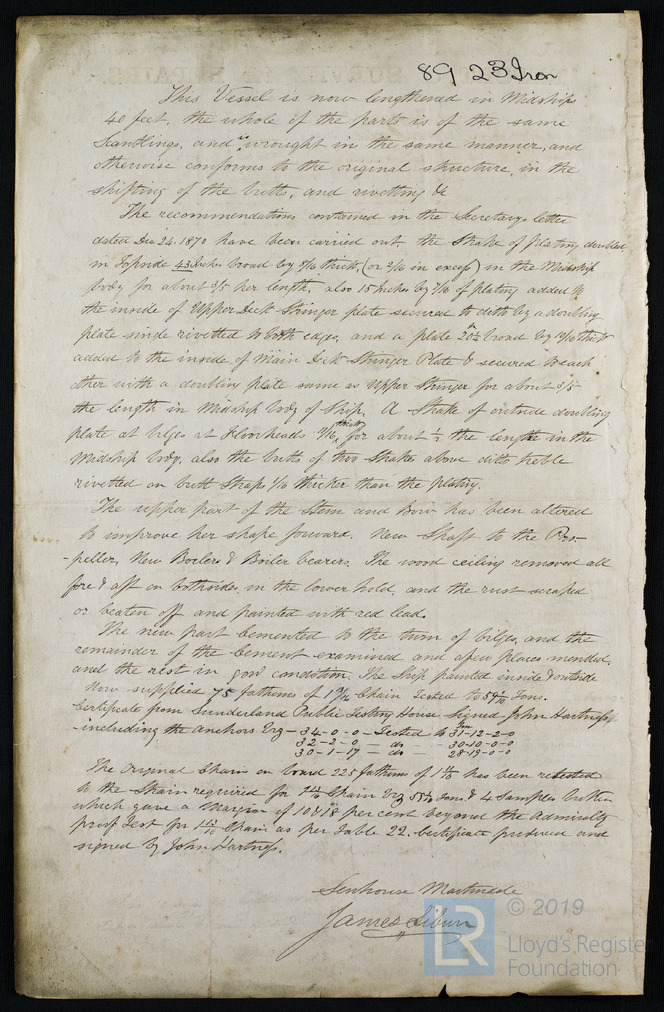 89 23 Iron
This Vessel is now lengthened in Midships
40 feet, the whole of the parts is of the same
Scantlings, and wrought in the same manner, and
otherwise conforms to the original structure, in the
shifting of the butts, and rivetting &c
The recommendations contained in the Secretarys letter
dated Dec 24. 1870 have been carried out. the Strake of plating doubled
in Topside 43 Inches broad by 9/16 thick, (or 2/16 in excess) in the Midship
body for about 3/5 her length. also 15 Inches by 9/16 of plating added to
the inside of Upper Deck Stringer plate secured to ditto by a doubling
plate single rivetted to both edges, and a plate 20½ In broad by 10/16 thick
added to the inside of Main Deck Stringer Plate & secured to each
other with a doubling plate same as Upper Stringer for about 3/5
the length in Midship body of Ship. A Strake of outside doubling
plate at bilges at Floorheads 11/16 thick for about ½ the length in the
Midship body. also the butts of two Strakes above ditto treble
rivetted on butt Straps 1/16 thicker than the plating.
The upper part of the Stem and Bow has been altered
to improve her shape forward. New Shaft to the Pro-
-peller, New Boilers & Boiler bearers. The wood ceiling removed all
fore & aft on bothsides, in the lower hold, and the rust scraped
or beaten off and painted with red lead.
The new part Cemented to the turn of bilges, and the
remainder of the Cement examined and a few places mended,
and the rest in good condition. The Ship painted inside & outside
Now supplied 75 fathoms of Chain Tested to Tons.
Certificate from Sunderland Public Testing House Signed John Hartness,
including the Anchors Erg - 34-0-0 - Tested to 31-12-2-0
32-2-0 — do — 30-10-0-0
30-1-17 — do — 28-19-0-0
The Original Chain on board 225 fathoms of has been retested
to the Strain required for Chain Erg tons, & 4 Samples broken
which gave a Margin of 10 & 18 per cent beyond the Admiralty
proof Test for Chain as per Table 22. Certificate produced and
signed by John Hartness.
Senhouse Martindale
James Lilburn
© 2019
LR
Lloyd's Register
Foundation